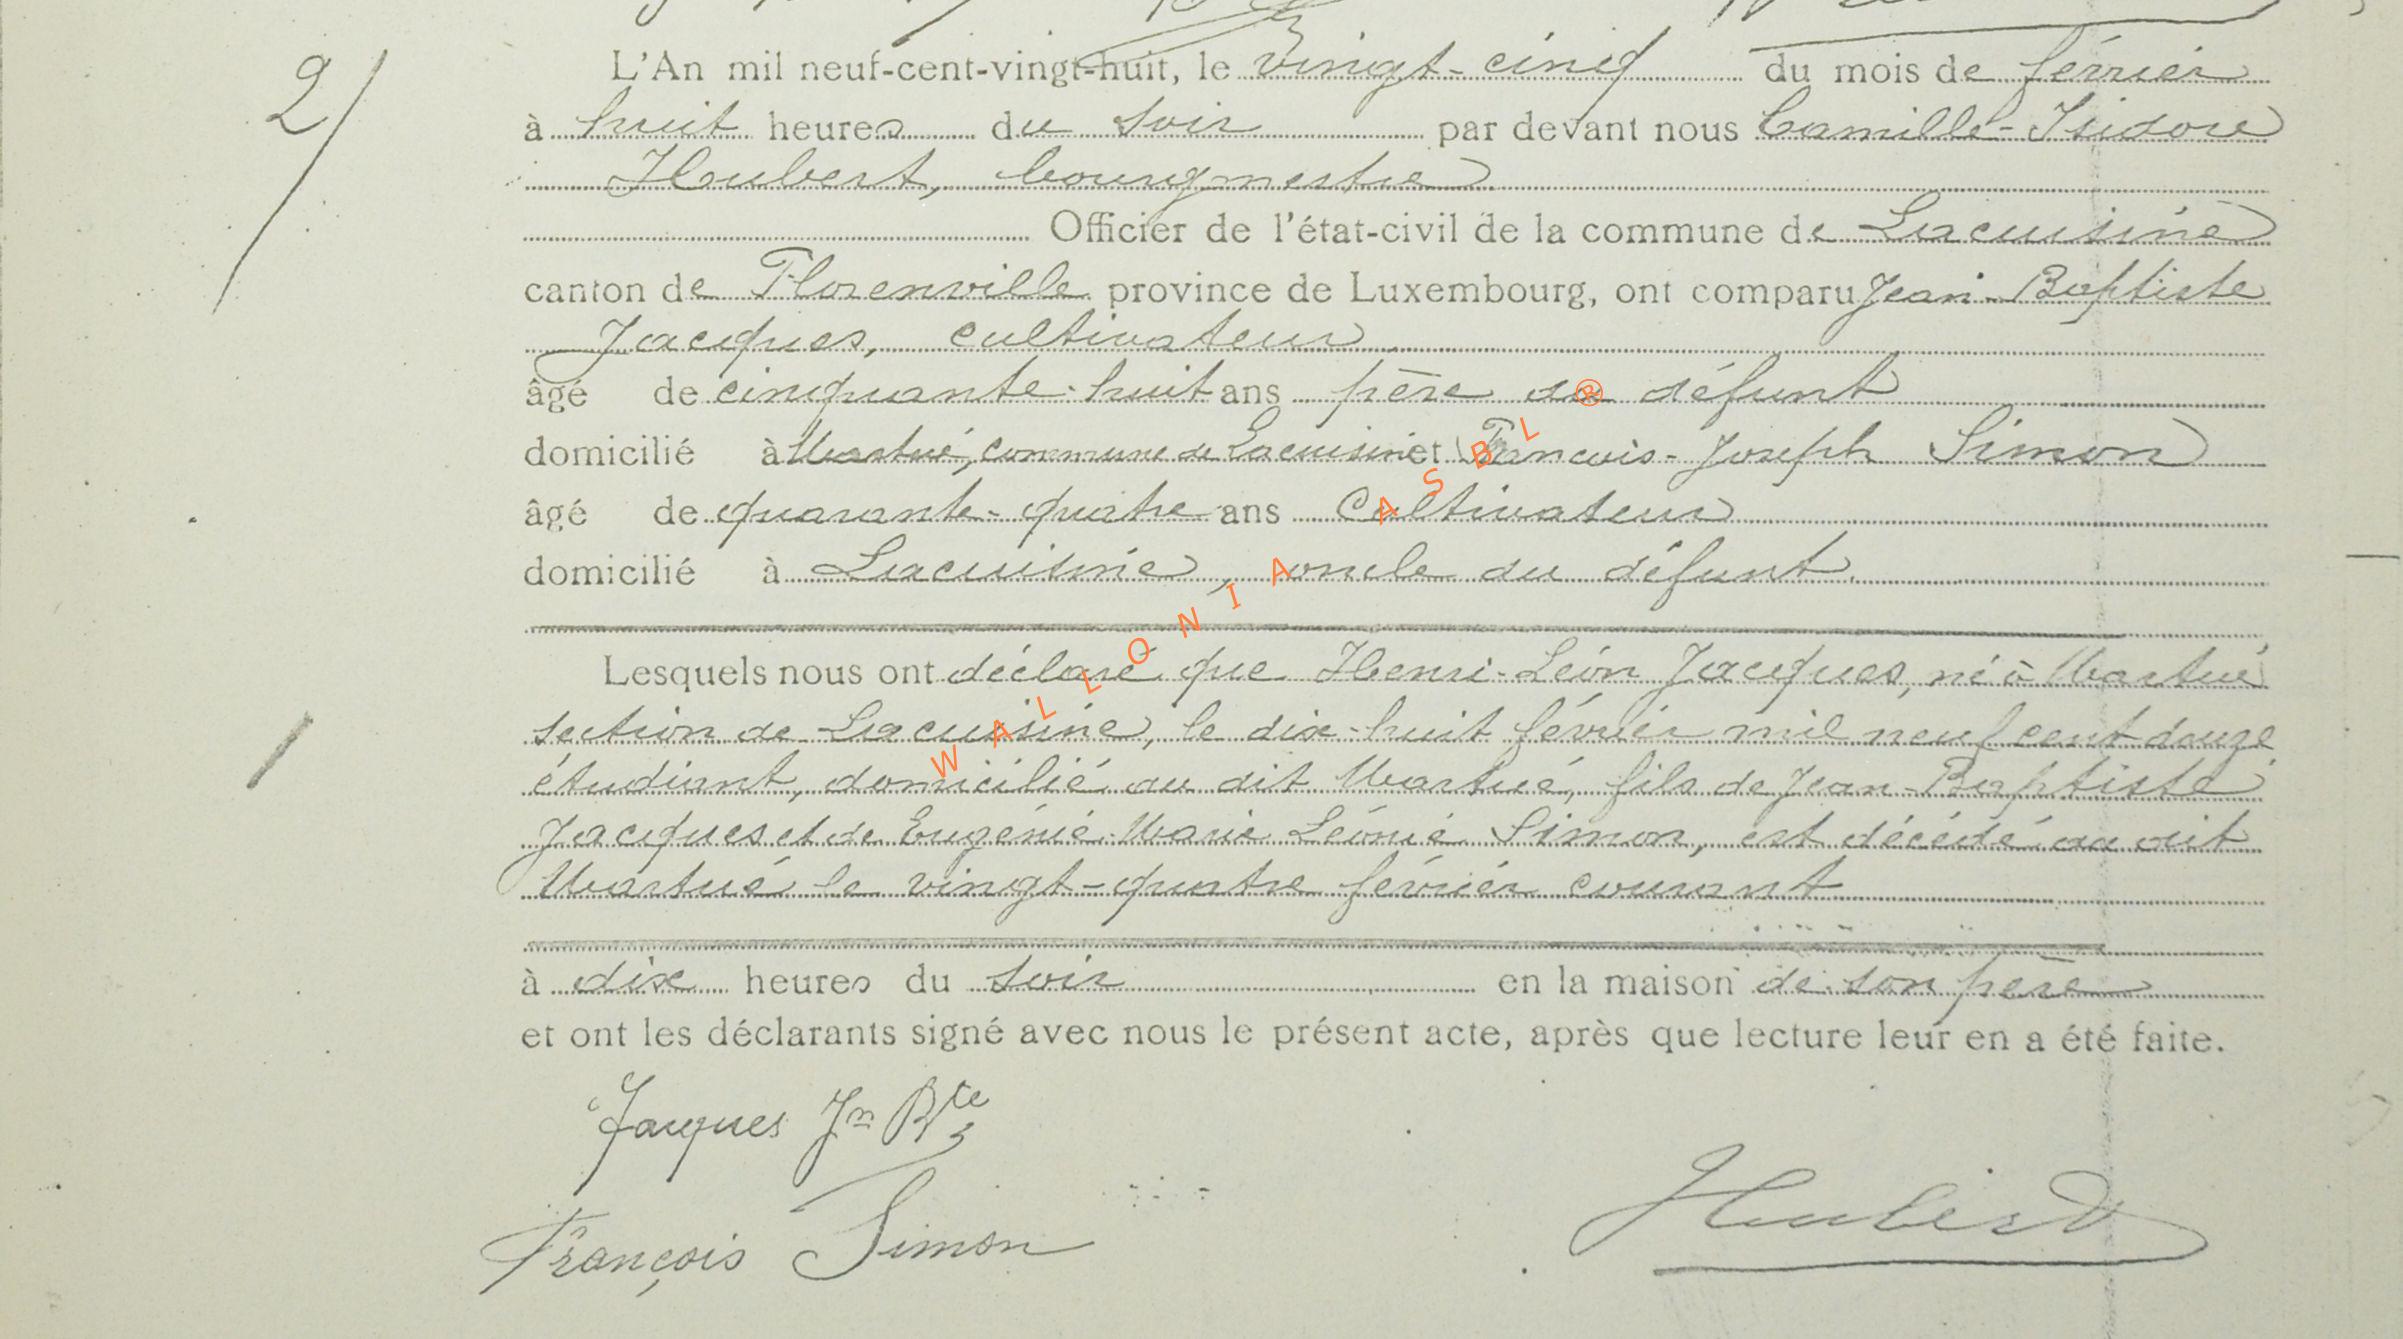 2/
L'An mil neuf-cent-vingt-huit, le vingt-cinq du mois de février
à huit heures du soir par devant nous Camille-Isidore
Hubert, bourgmestre
Officier de l'état-civil de la commune de Lacuisine
canton de Florenville province de Luxembourg, ont comparu Jean-Baptiste
Jacques, cultivateur
âgé de cinquante-huit ans père du défunt
domicilié à Martué, commune de Lacuisine et François-Joseph Simon
âgé de quarante-quatre ans Cultivateur
domicilié à Lacuisine, oncle du défunt.
Lesquels nous ont déclaré que Henri-Léon Jacques, né à Martué
section de Lacuisine, le dix-huit février mil neuf cent douze
étudiant, domicilié au dit Martué, fils de Jean-Baptiste
Jacques et de Eugénie-Marie Léonie Simon, est décédé au dit
Martué le vingt-quatre février courant
à dix heures du soir en la maison de son père
et ont les déclarants signé avec nous le présent acte, après que lecture leur en a été faite.
Jacques Jn Bte
François Simon
Hubert
WALLONIA ASBL ®